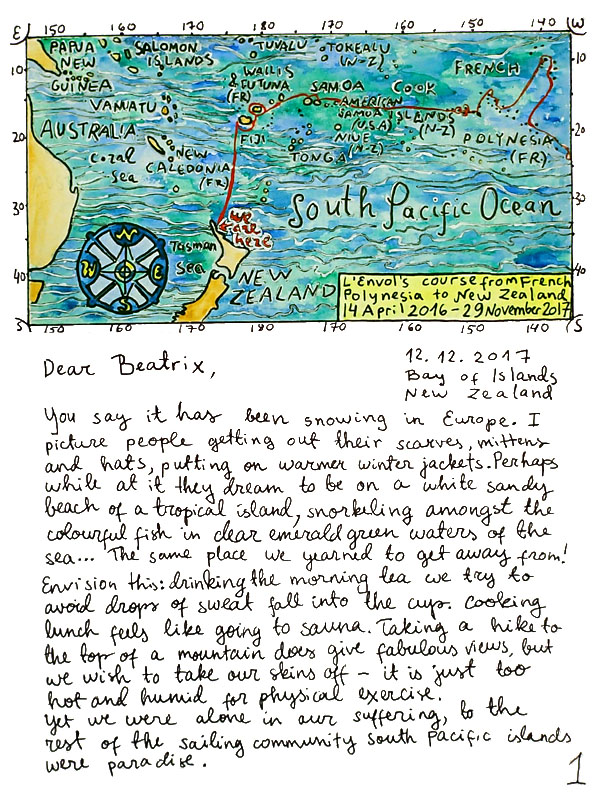 E 150 160 170 180 170 160 150 140 W
PAPUA NEW GUINEA
SOLOMON ISLANDS
TUVALU
TOKELAU (N-Z)
10
WALLIS & FUTUNA (FR)
SAMOA
COOK
FRENCH
10
VANUATU
AMERICAN SAMOA (USA)
ISLANDS (N-Z)
AUSTRALIA
20
FIJI
NIUE (N-Z)
POLYNESIA (FR)
20
Coral Sea
NEW CALEDONIA (FR)
TONGA
30
South Pacific Ocean
30
we are here
N
W E
S
Tasman Sea
40
NEW ZEALAND
40
L'Envol's course from French
Polynesia to New Zealand
14 April 2016 - 29 November 2017
S 150 160 170 180 170 160 150 140 S
Dear Beatrix,
12.12.2017
Bay of Islands
New Zealand
You say it has been snowing in Europe. I
picture people getting out their scarves, mittens
and hats, putting on warmer winter jackets. Perhaps
while at it they dream to be on a white sandy
beach of a tropical island, snorkeling amongst the
colourful fish in clear emerald green waters of the
sea... The same place we yearned to get away from!
Envision this: drinking the morning tea we try to
avoid drops of sweat fall into the cup. Cooking
lunch feels like going to sauna. Taking a hike to
the top of a mountain does give fabulous views, but
we wish to take our skins off - it is just too
hot and humid for physical exercise.
Yet we were alone in our suffering, to the
rest of the sailing community South Pacific islands
were paradise.
1